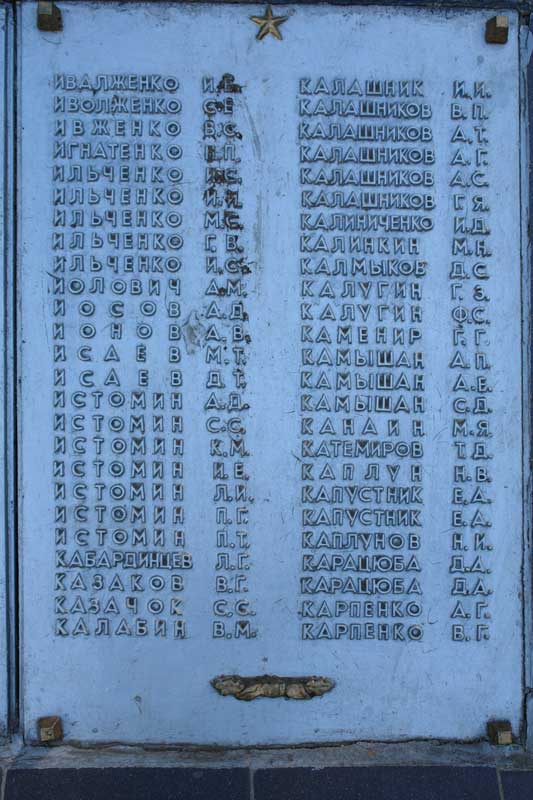 ИВАЛЖЕНКО И.Е.
ИВОЛЖЕНКО С.Е
ИВЖЕНКО В.С.
ИГНАТЕНКО П.
ИЛЬЧЕНКО С.
ИЛЬЧЕНКО И.И.
ИЛЬЧЕНКО М.С.
ИЛЬЧЕНКО Г.В.
ИЛЬЧЕНКО И.С.
ИОЛОВИЧ А.М.
ИОСОВ А.Д.
ИОНОВ А.В.
ИСАЕВ М.Т.
ИСАЕВ Д.Т.
ИСТОМИН А.Д.
ИСТОМИН С.С.
ИСТОМИН К.М.
ИСТОМИН И.Е.
ИСТОМИН Л.И.
ИСТОМИН П.Г.
ИСТОМИН П.Т.
КАБАРДИНЦЕВ Л.Г.
КАЗАКОВ В.Г.
КАЗАЧОК С.С.
КАЛАБИН В.М.
КАЛАШНИК И.И.
КАЛАШНИКОВ В.П.
КАЛАШНИКОВ А.Т.
КАЛАШНИКОВ А.Г.
КАЛАШНИКОВ А.С.
КАЛАШНИКОВ Г.Я.
КАЛИНИЧЕНКО И.Д.
КАЛИНКИН М.Н.
КАЛМЫКОВ Д.С.
КАЛУГИН Г.З.
КАЛУГИН Ф.С.
КАМЕНИР Г.Г.
КАМЫШАН А.П.
КАМЫШАН А.Е.
КАМЫШАН С.Д.
КАНАИН М.Я.
КАТЕМИРОВ Т.Д.
КАПЛУН Н.В.
КАПУСТНИК Е.А.
КАПУСТНИК Е.А.
КАПЛУНОВ Н.И.
КАРАЦЮБА Д.А.
КАРАЦЮБА Д.А.
КАРПЕНКО А.Г.
КАРПЕНКО В.Г.